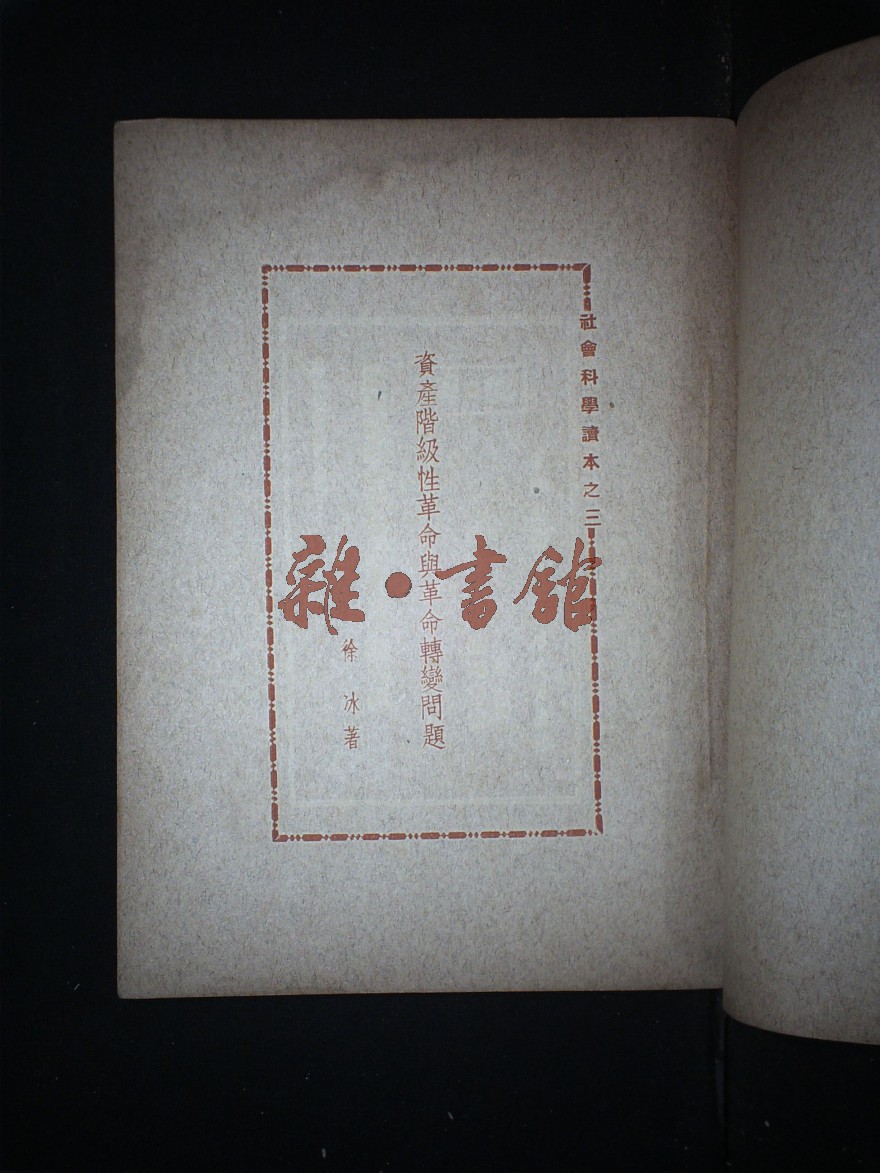 社會科學讀本之三
資產階級性革命與革命轉變問題
徐冰著
雜·書館